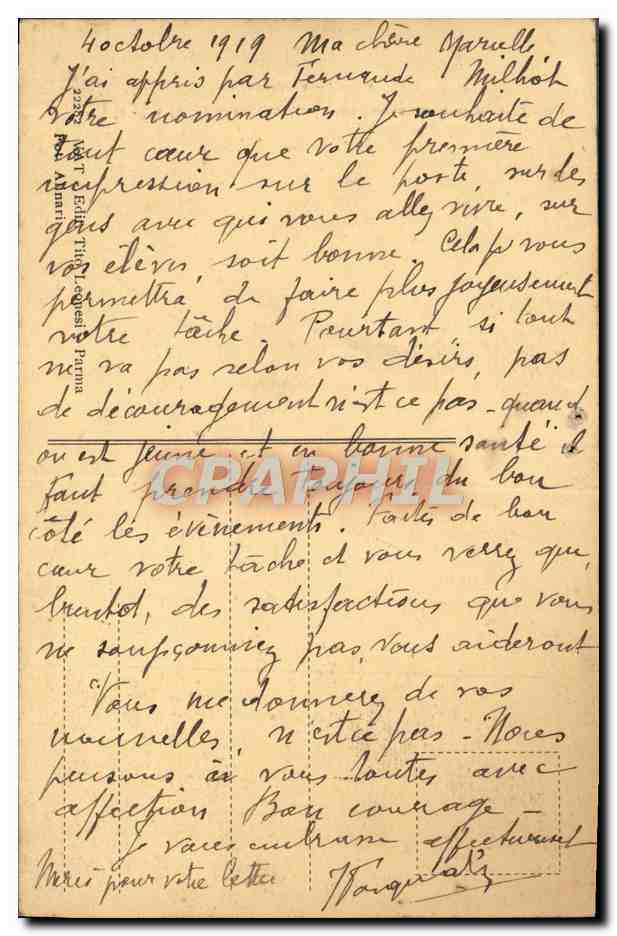 4 octobre 1919 Ma chère Marcelle
J'ai appris par Fernande Milhot
votre nomination. Je souhaite de
tout cœur que votre première
impression sur le poste, sur les
gens avec qui vous allez vivre, sur
vos élèves, soit bonne. Cela vous
permettra de faire plus joyeusement
votre tâche. Pourtant si tout
ne va pas selon vos désirs, pas
de découragement n'est ce pas - quand
on est jeune et en bonne santé il
faut prendre toujours du bon
côté les évènements. Faites de bon
cœur votre tâche et vous verrez que,
bientôt, des satisfactions que vous
ne soupçonniez pas, vous aideront
Vous me donnerez de vos
nouvelles, n'est ce pas - Nous
pensons à vous toutes avec
affection Bon courage -
Je vous embrasse affectueusement
Merci pour votre lettre
22282 Ediz. Tito Leonesi Parma
Fot. Alinari
CPAPHIL